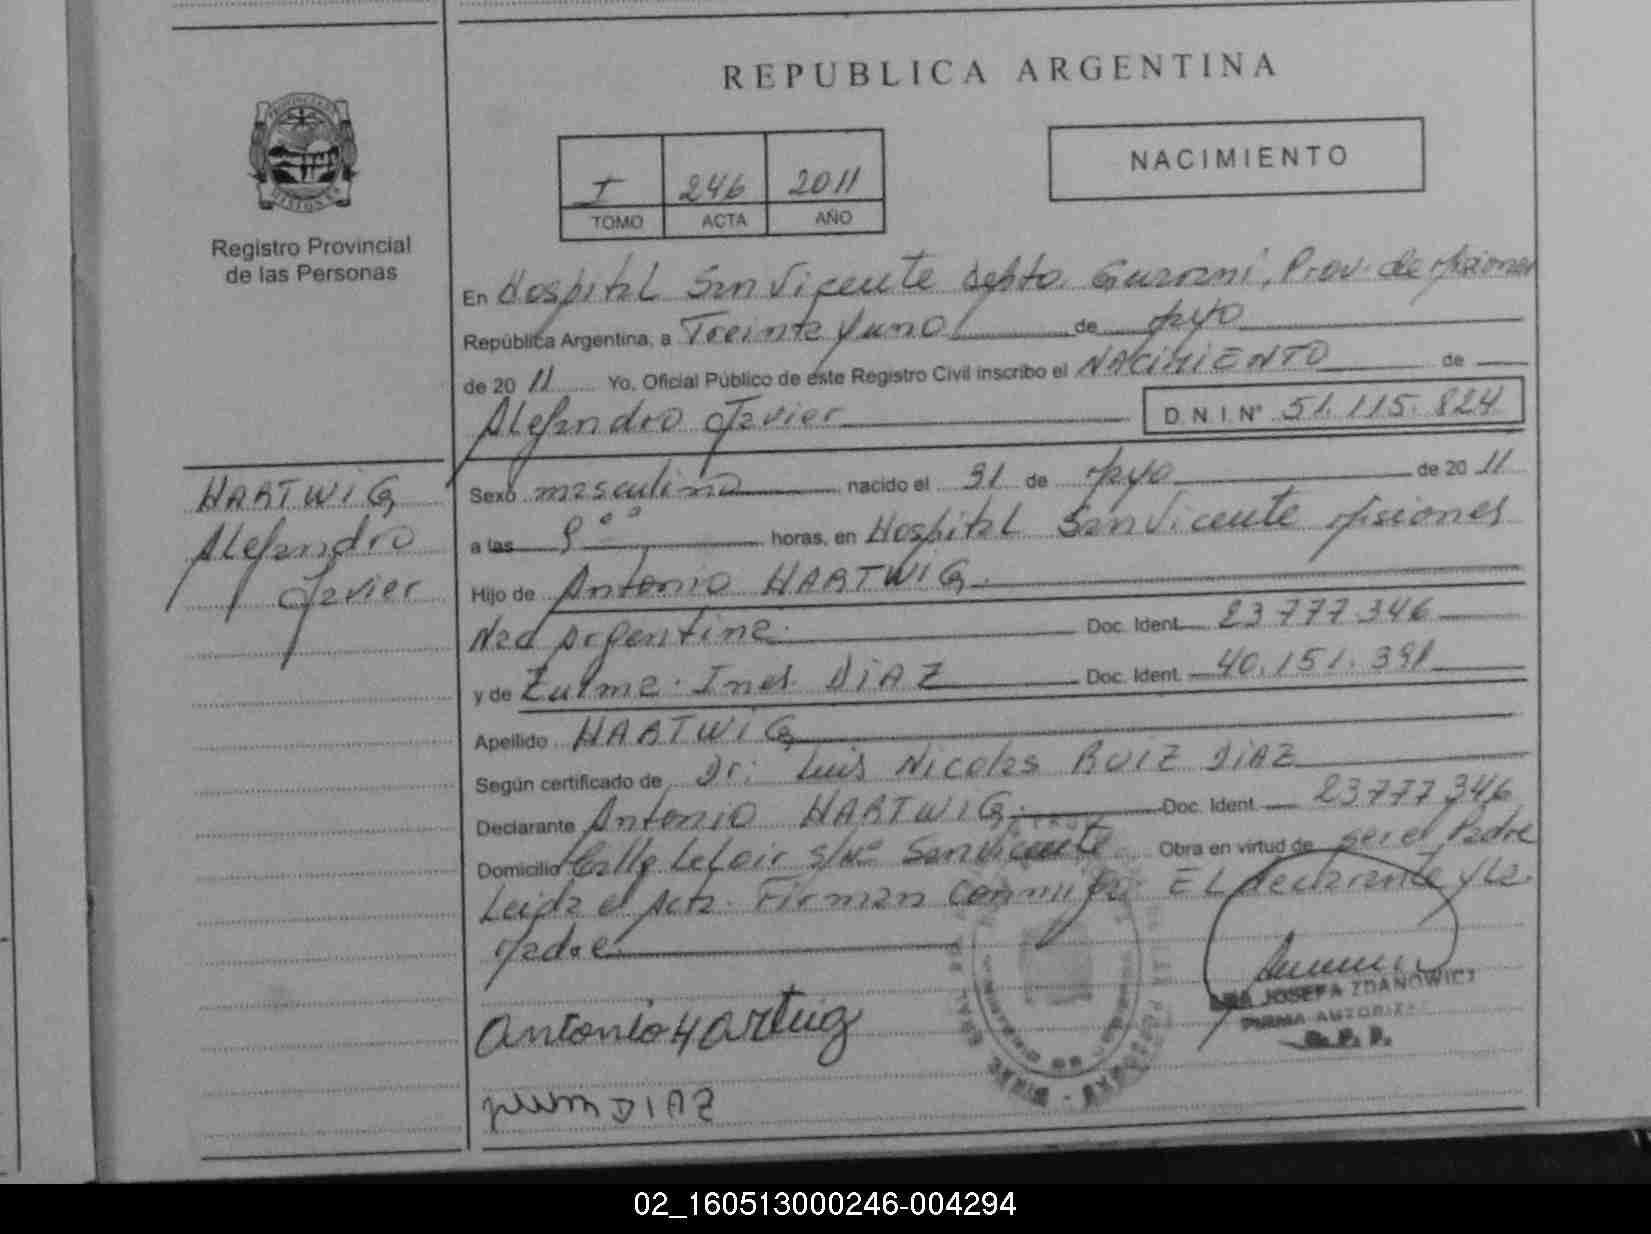 REPUBLICA ARGENTINA
NACIMIENTO
I 246 2011
TOMO ACTA AÑO
Registro Provincial
de las Personas
En Hospital San Vicente depto. Guaraní, Prov. de Misiones
República Argentina, a Treinta y uno de Mayo
de 20 11 Yo, Oficial Público de este Registro Civil inscribo el NACIMIENTO de
Alejandro Javier D. N. I. N° 51.115.824
HARTWIG
Alejandro
Javier
Sexo masculino nacido el 31 de Mayo de 20 11
a las horas, en Hospital San Vicente Misiones
Hijo de Antonio HARTWIG
Nac Argentina Doc. Ident. 23.777.346
y de Zulma Ines DIAZ Doc. Ident. 40.151.391
Apellido HARTWIG
Según certificado de Dr. Luis Nicolas RUIZ DIAZ
Declarante Antonio HARTWIG Doc. Ident. 23.777.346
Domicilio Calle Leloir s/Nº San Vicente Obra en virtud de ser el Padre
Leida el Acta. Firman conmigo El declarante y la
Madre
Antonio Hartwig
DIAZ
JOSEFA ZDANOWICZ
FIRMA AUTORIZ
02_160513000246-004294